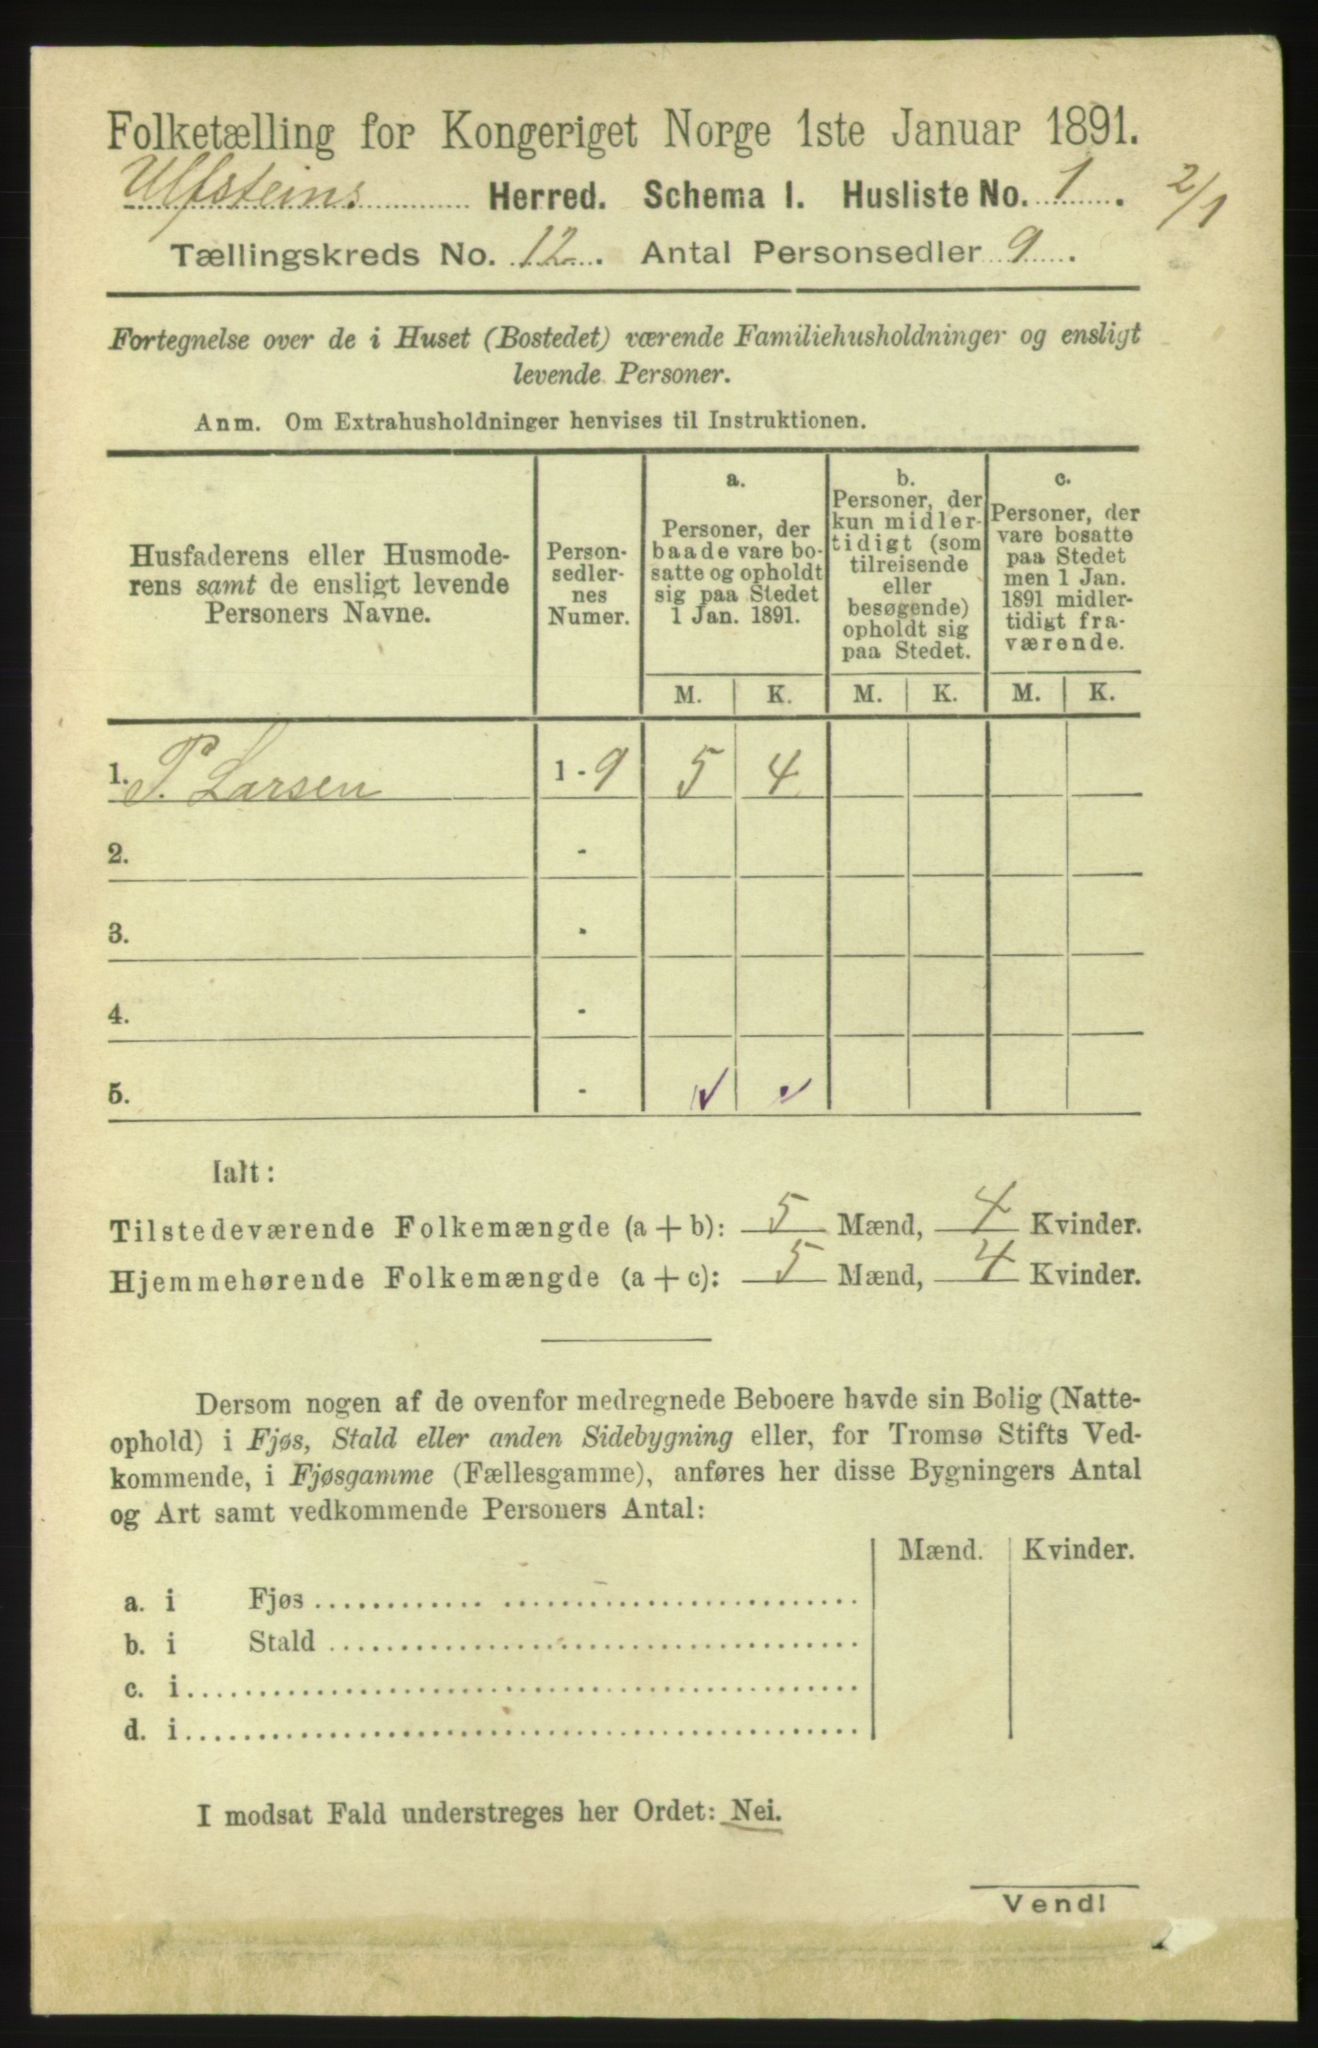 Folketælling for Kongeriget Norge 1ste Januar 1891.
Ulfsteins Herred. Schema I. Husliste No. 1. 2/1
Tællingskreds No. 12. Antal Personsedler 9.
Fortegnelse over de i Huset (Bostedet) værende Familiehusholdninger og ensligt
levende Personer.
Anm. Om Extrahusholdninger henvises til Instruktionen.
Husfaderens eller Husmode-
rens samt de ensligt levende
Personers Navne.
Person-
sedler-
nes
Numer.
a.
Personer, der
baade vare bo-
satte og opholdt
sig paa Stedet
1 Jan. 1891.
b.
Personer, der
kun midler-
tidigt (som
tilreisende
eller
besøgende)
opholdt sig
paa Stedet.
c.
Personer, der
vare bosatte
paa Stedet
men 1 Jan.
1891 midler-
tidigt fra-
værende.
M. K. M. K. M. K.
1. P. Larsen 1 - 9 5 4
2. -
3. -
4. -
5. -
Ialt:
Tilstedeværende Folkemængde (a + b): 5 Mænd, 4 Kvinder.
Hjemmehørende Folkemængde (a + c): 5 Mænd, 4 Kvinder.
Dersom nogen af de ovenfor medregnede Beboere havde sin Bolig (Natte-
ophold) i Fjøs, Stald eller anden Sidebygning eller, for Tromsø Stifts Ved-
kommende, i Fjøsgamme (Fællesgamme), anføres her disse Bygningers Antal
og Art samt vedkommende Personers Antal:
Mænd. Kvinder.
a. i Fjøs
b. i Stald
c. i
d. i
I modsat Fald understreges her Ordet: Nei.
Vend!